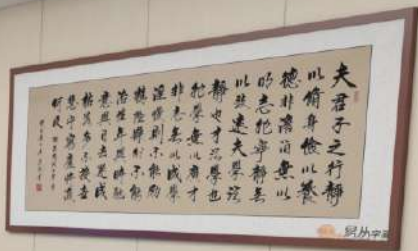 夫君子之行靜
以脩身儉以養
德非澹泊無以
明志非寧靜無
以致遠夫學須
靜也才須學也
非學無以廣才
非志無以成學
淫慢則不能勵
精險躁則不能
治性年與時馳
意與日去遂成
枯落多不接世
悲守窮廬將復
何及
易从字画